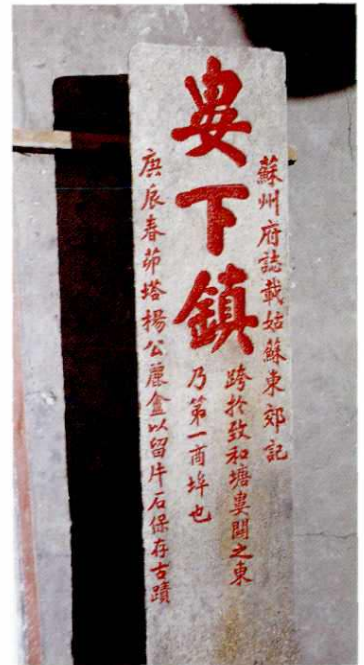 蘇州府誌載姑蘇東郊記
婁下鎮
跨於致和塘婁關之東
乃第一商埠也
庚辰春茆塔楊公麗盒以留片石保存古蹟